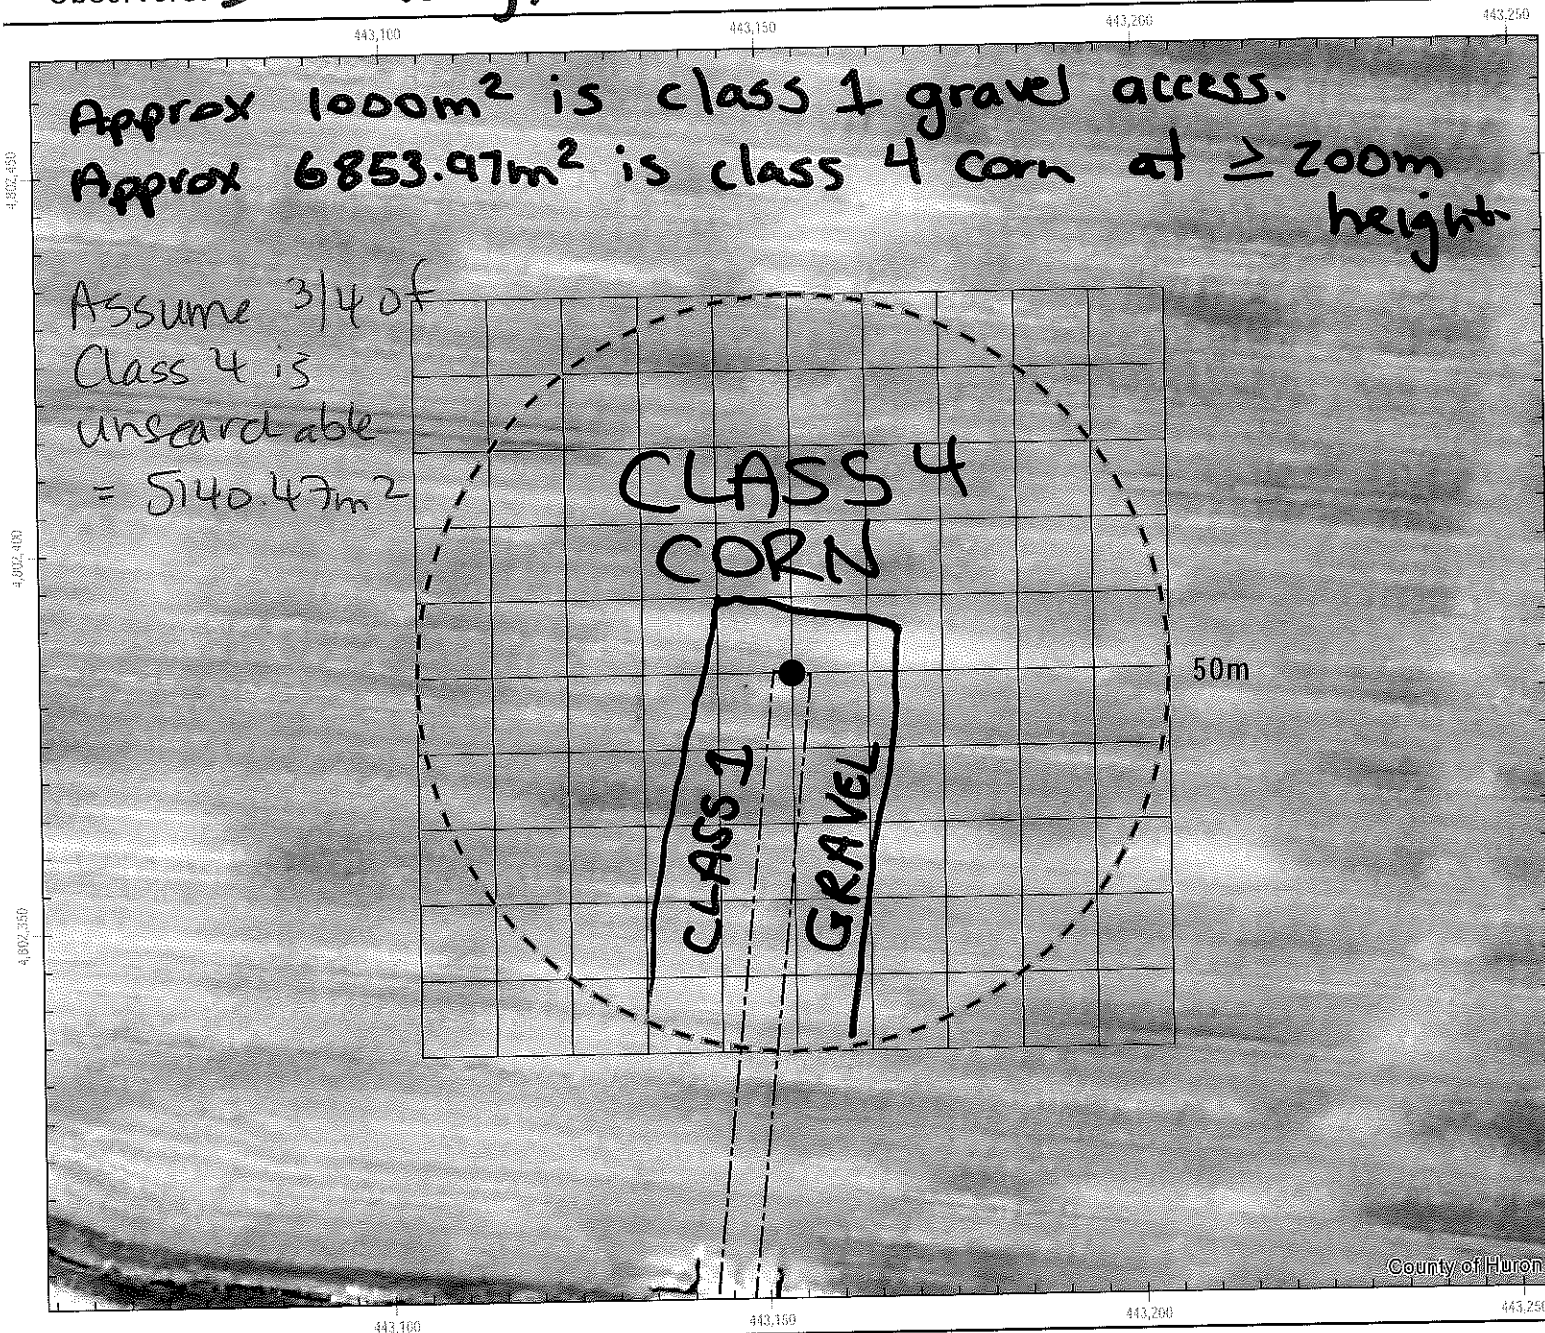 443,100 443,150 443,200 443,250
Approx 1000m² is class 1 gravel access.
Approx 6853.97m² is class 4 corn at ≥ 200m
height
4,802,450
Assume 3/4 of
Class 4 is
unsearchable
= 5140.47m²
CLASS 4
CORN
4,802,400
50m
CLASS 1
GRAVEL
4,802,350
County of Huron
443,100 443,150 443,200 443,250